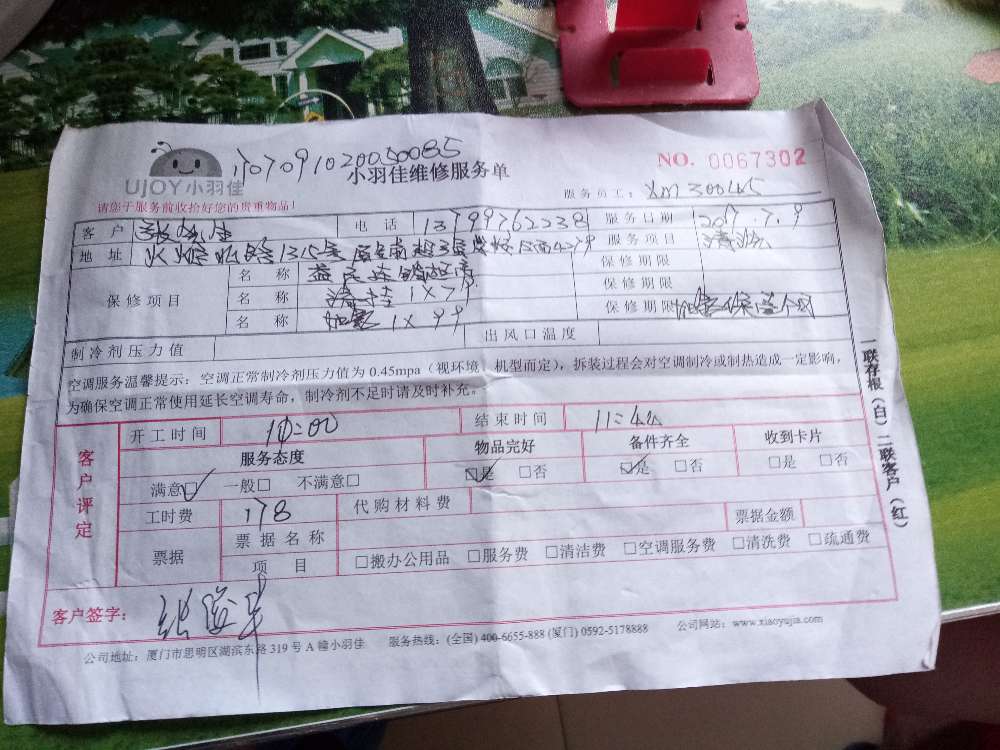 1707091020050085
UJOY小羽佳
小羽佳维修服务单
NO. 0067302
请您于服务前收拾好您的贵重物品!
服务员工: XM300445
客户 电话 13799762238 服务日期 2017.7.9
地址 服务项目 清洗
名称 保修期限
保修项目 名称 清挂 1X79 保修期限
名称 加氨 1X99 保修期限
制冷剂压力值 出风口温度
空调服务温馨提示: 空调正常制冷剂压力值为 0.45mpa (视环境、机型而定), 拆装过程会对空调制冷或制热造成一定影响,
为确保空调正常使用延长空调寿命, 制冷剂不足时请及时补充。
客户评定
开工时间 10:00 结束时间
服务态度 物品完好 备件齐全 收到卡片
满意☑ 一般□ 不满意□ ☑是 □否 ☑是 □否 □是 □否
工时费 178 代购材料费
票据 票据名称 票据金额
项目 □搬办公用品 □服务费 □清洁费 □空调服务费 □清洗费 □疏通费
客户签字:
公司地址: 厦门市思明区湖滨东路 319 号 A 幢小羽佳 服务热线: (全国) 400-6655-888 (厦门) 0592-5178888 公司网站: www.xiaoyujia.com
一联存根(白) 二联客户(红)